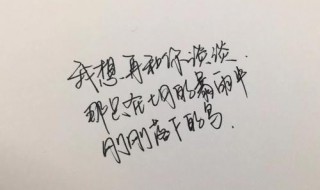 我想再和你谈谈
那只在七月的暴雨中
刚刚落下的鸟.